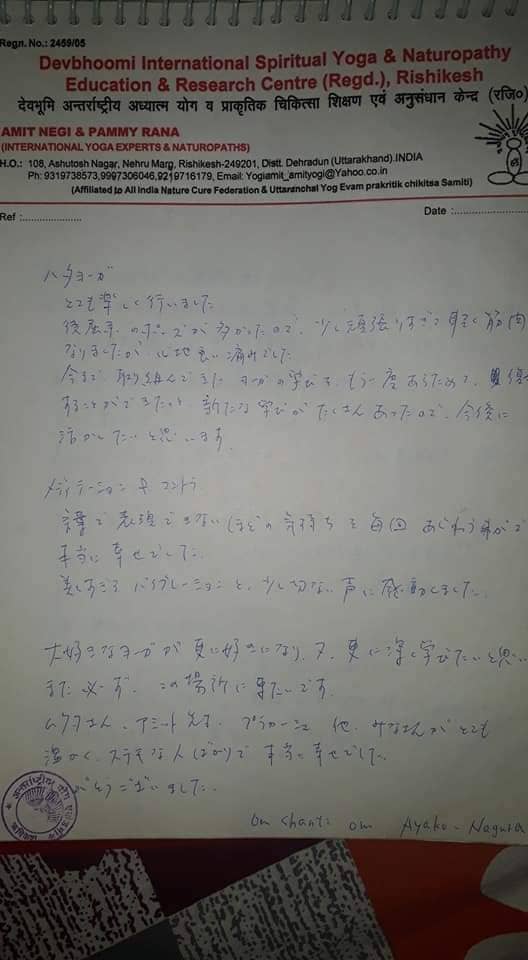 Regn. No.: 2459/05
Devbhoomi International Spiritual Yoga & Naturopathy
Education & Research Centre (Regd.), Rishikesh
देवभूमि अन्तर्राष्ट्रीय अध्यात्म योग व प्राकृतिक चिकित्सा शिक्षण एवं अनुसंधान केन्द्र (रजि०)
AMIT NEGI & PAMMY RANA
(INTERNATIONAL YOGA EXPERTS & NATUROPATHS)
H.O.: 108, Ashutosh Nagar, Nehru Marg, Rishikesh-249201, Distt. Dehradun (Uttarakhand).INDIA
Ph: 9319738573,9997306046,9219716179, Email: Yogiamit_amityogi@Yahoo.co.in
(Affiliated to All India Nature Cure Federation & Uttaranchal Yog Evam prakritik chikitsa Samiti)
Ref :..................... Date :.....................
ハタヨーガ
とても楽しく行いました
後屈系のポーズが多かったので、少し頑張りすぎて軽く筋肉
なりましたが、心地良い痛みでした
今まで取り組んできたヨーガの学びを、もう一度あらためて、復
することができたのと、新たな学びがたくさんあったので、今後に
活かしたいと思います
メディテーション & マントラ
言葉で表現できないほどの気持ちを毎回あじわう事ができ
本当に幸せでした
美しすぎる バイブレーションと、少し切ない声に感動しました。
大好きなヨーガが更に好きになり、又、更に深く学びたいと思い
また必ず、この場所に来たいです
さん、アミット先生、プラカーシュ 他、みなさんがとても
温かく、ステキな人ばかりで本当に幸せでした
がとうございました。
Om Shanti om Ayako Nagura